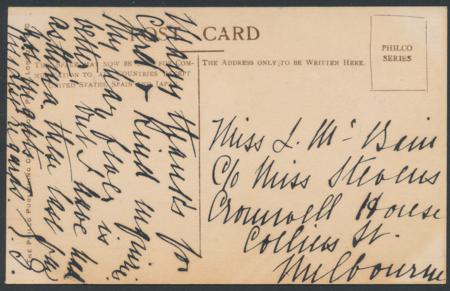 POST CARD
THIS SPACE MAY NOW BE USED FOR COM-
MUNICATION TO ALL COUNTRIES EXCEPT
UNITED STATES, SPAIN AND JAPAN.
THE ADDRESS ONLY TO BE WRITTEN HERE.
PHILCO
SERIES
THE PHILCO PUBLISHING CO
Many thanks for
Card & kind inquirie.
The Hay fever is
better but I have had
asthma these last few
Miss L. McBain
C/o Miss Stevens
Cromwell House
Collins St.
Melbourne